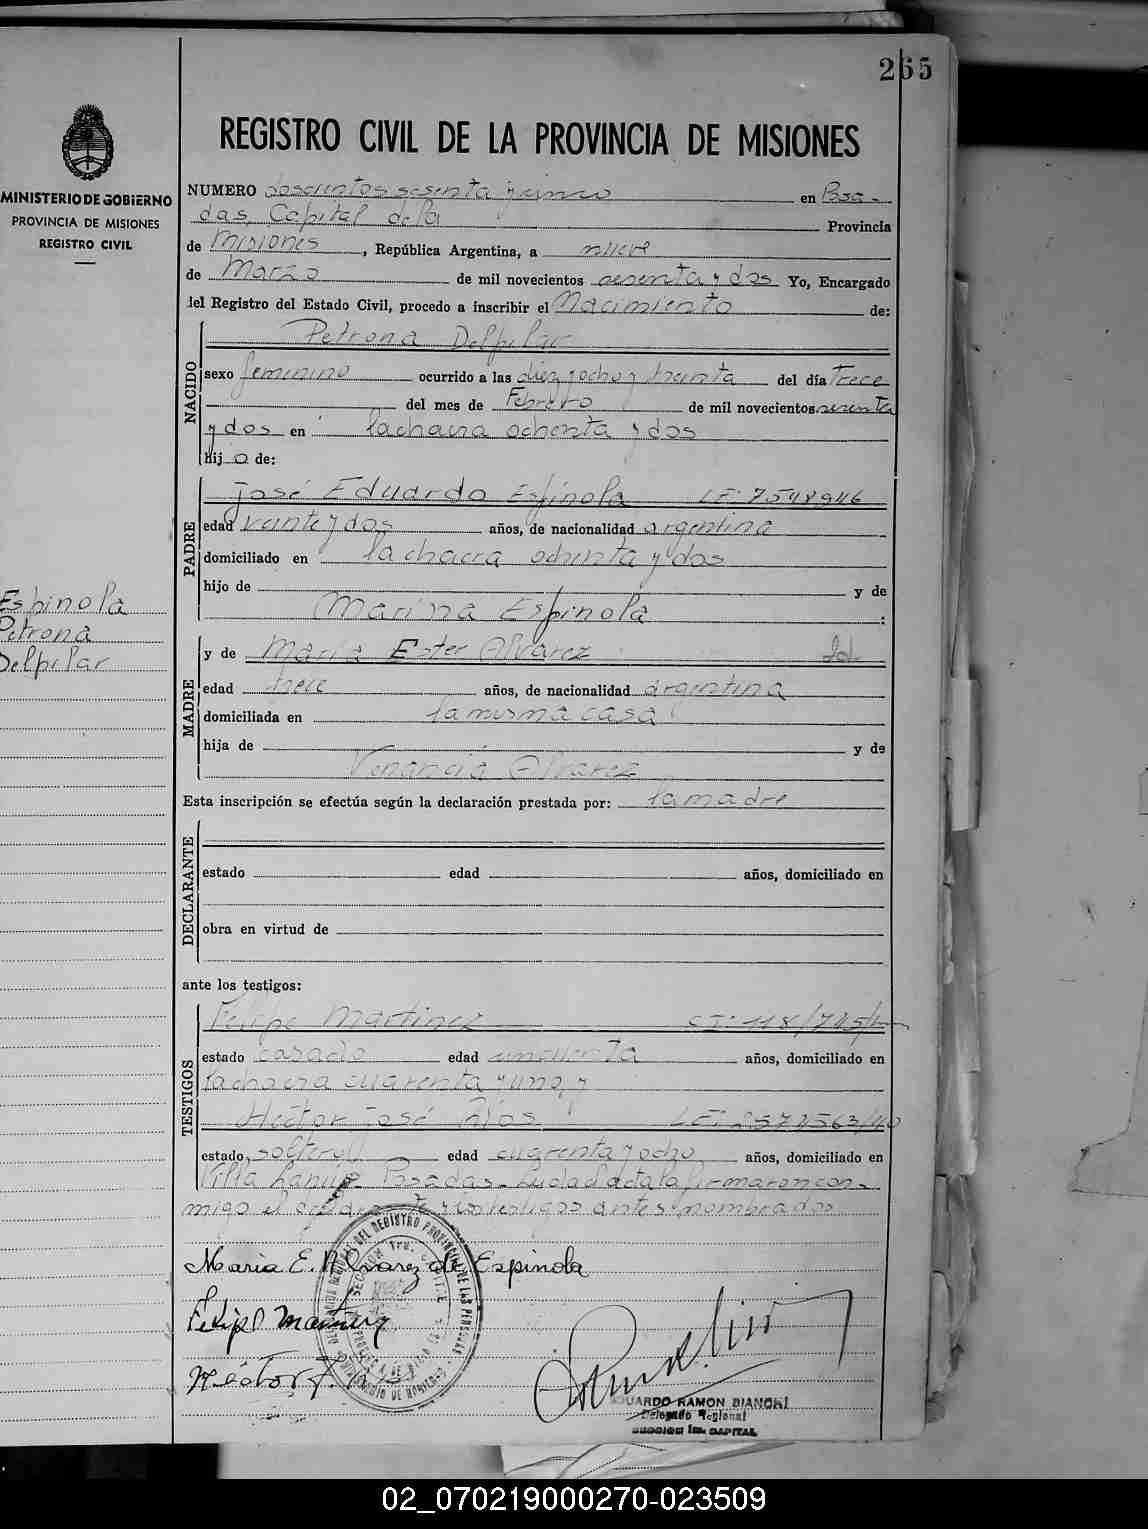 265
REGISTRO CIVIL DE LA PROVINCIA DE MISIONES
MINISTERIO DE GOBIERNO
PROVINCIA DE MISIONES
REGISTRO CIVIL
NUMERO doscientos sesenta y cinco en Posa-
das, Capital de la Provincia
de Misiones, República Argentina, a nueve
de Marzo de mil novecientos sesenta y dos Yo, Encargado
del Registro del Estado Civil, procedo a inscribir el Nacimiento de:
NACIDO
Petrona Delpilar
sexo femenino ocurrido a las diez y ocho y treinta del día Trece
del mes de Febrero de mil novecientos sesenta
y dos en la chacra ochenta y dos
hij a de:
PADRE
José Eduardo Espinola LE: 7548946
edad veinte y dos años, de nacionalidad argentina
domiciliado en la chacra ochenta y dos
hijo de y de
Marina Espinola :
Espinola
Petrona
Delpilar
MADRE
y de Maria Ester Alvarez
edad trece años, de nacionalidad argentina
domiciliada en la misma casa
hija de y de
Venancia Alvarez
Esta inscripción se efectúa según la declaración prestada por: la madre
DECLARANTE
estado edad años, domiciliado en
obra en virtud de
ante los testigos:
TESTIGOS
Felipe Martinez CI: 118/745/
estado casado edad cincuenta años, domiciliado en
la chacra cuarenta y uno, y
Hector José Rios LE: 2574563/40
estado soltero edad cuarenta y ocho años, domiciliado en
Villa Lanús Posadas. Leída el acta la firmaron con-
migo el y los testigos antes nombrados
Maria E. Alvarez de Espinola
Felipe Martinez
Héctor J.
EDUARDO RAMON BIANCHI
Delegado Regional
SECCION 1ra. CAPITAL
02_070219000270-023509